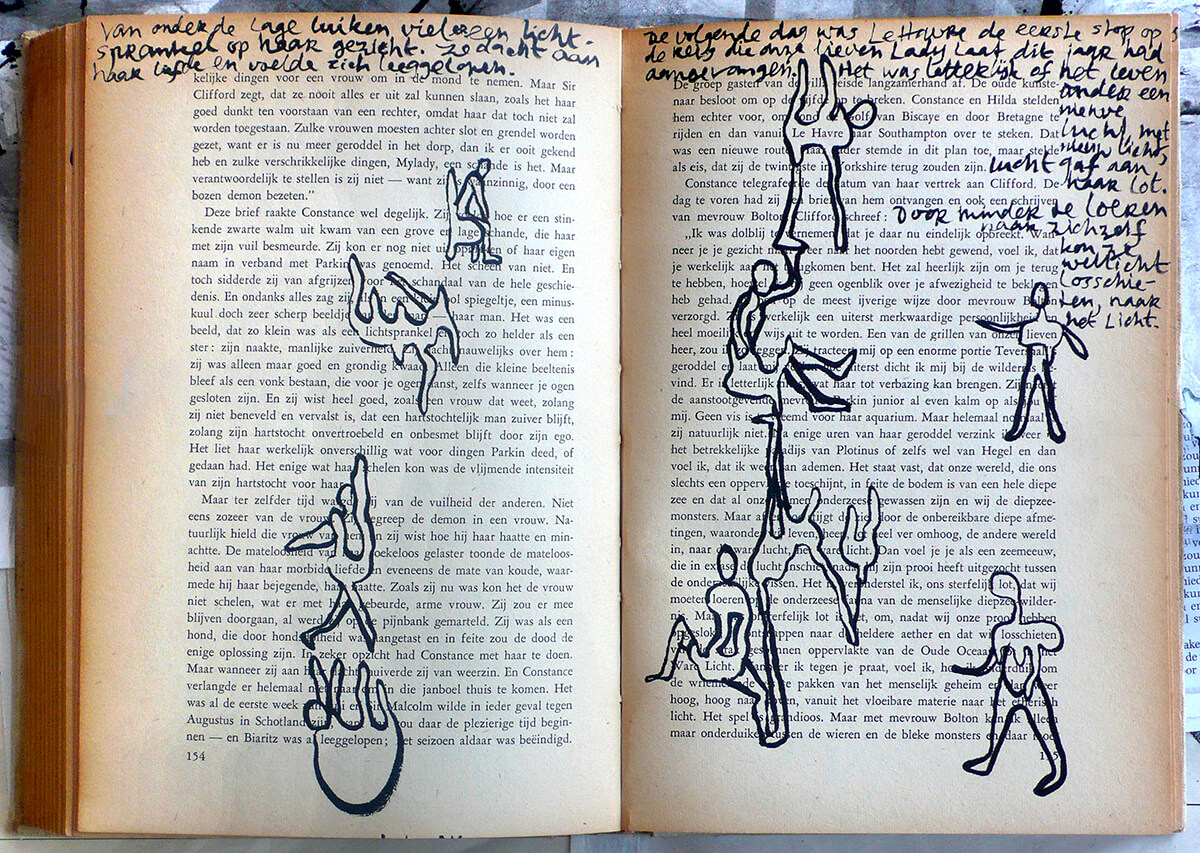 Van onder de lage luiken viel een licht-
sprankel op haar gezicht. Ze dacht aan
haar en voelde zich leeggelopen.
kelijke dingen voor een vrouw om in de mond te nemen. Maar Sir
Clifford zegt, dat ze nooit alles er uit zal kunnen slaan, zoals het haar
goed dunkt ten voorstaan van een rechter, omdat haar dat toch niet zal
worden toegestaan. Zulke vrouwen moesten achter slot en grendel worden
gezet, want er is nu meer geroddel in het dorp, dan ik er ooit gekend
heb en zulke verschrikkelijke dingen, Mylady, een schande is het. Maar
verantwoordelijk te stellen is zij niet — want zij is waanzinnig, door een
bozen demon bezeten.”
Deze brief raakte Constance wel degelijk. Zij hoe er een stin-
kende zwarte walm uit kwam van een grove en lage schande, die haar
met zijn vuil besmeurde. Zij kon er nog niet uit of haar eigen
naam in verband met Parkin was genoemd. Het scheen van niet. En
toch sidderde zij van afgrijzen voor het schandaal van de hele geschie-
denis. En ondanks alles zag zij, een klein bol spiegeltje, een minus-
kuul doch zeer scherp beeldje haar man. Het was een
beeld, dat zo klein was als een lichtsprankel en toch zo helder als een
ster: zijn naakte, manlijke zuiverheid. dacht nauwelijks over hem:
zij was alleen maar goed en grondig kwaad. Alleen die kleine beeltenis
bleef als een vonk bestaan, die voor je ogen danst, zelfs wanneer je ogen
gesloten zijn. En zij wist heel goed, zoals een vrouw dat weet, zolang
zij niet beneveld en vervalst is, dat een hartstochtelijk man zuiver blijft,
zolang zijn hartstocht onvertroebeld en onbesmet blijft door zijn ego.
Het liet haar werkelijk onverschillig wat voor dingen Parkin deed, of
gedaan had. Het enige wat haar schelen kon was de vlijmende intensiteit
van zijn hartstocht voor haar.
Maar ter zelfder tijd zij van de vuilheid der anderen. Niet
eens zozeer van de vrouw. Zij begreep de demon in een vrouw. Na-
tuurlijk hield die vrouw van hem en zij wist hoe hij haar haatte en min-
achtte. De mateloosheid van roekeloos gelaster toonde de mateloos-
heid aan van haar morbide liefde en eveneens de mate van koude, waar-
mede hij haar bejegende, haar haatte. Zoals zij nu was kon het de vrouw
niet schelen, wat er met haar gebeurde, arme vrouw. Zij zou er mee
blijven doorgaan, al werd zij op de pijnbank gemarteld. Zij was als een
hond, die door hondsdolheid was aangetast en in feite zou de dood de
enige oplossing zijn. In zeker opzicht had Constance met haar te doen.
Maar wanneer zij aan hem dacht huiverde zij van weerzin. En Constance
verlangde er helemaal niet naar om in die janboel thuis te komen. Het
was al de eerste week en Sir Malcolm wilde in ieder geval tegen
Augustus in Schotland zijn. zou daar de plezierige tijd begin-
nen — en Biaritz was al leeggelopen; het seizoen aldaar was beëindigd.
154
De volgende dag was Le Havre de eerste stop op
de reis die onze lieven Lady laat dit jaar had
aangevangen. Het was letterlijk of het leven
De groep gasten van de villa reisde langzamerhand af. De oude kunste-
ander een
naar besloot om op de vijfde op te breken. Constance en Hilda stelden
hem echter voor, om rond de Golf van Biscaye en door Bretagne te
rijden en dan vanuit Le Havre naar Southampton over te steken. Dat
lucht, met
was een nieuwe route. Haar vader stemde in dit plan toe, maar stelde
nieuw licht,
als eis, dat zij de twintigste in Yorkshire terug zouden zijn.
lucht gaf aan
Constance telegrafeerde de datum van haar vertrek aan Clifford. De
haar lot.
dag te voren had zij een brief van hem ontvangen en ook een schrijven
van mevrouw Bolton. Clifford schreef:
Door minder te loeren
naar zichzelf
„Ik was dolblij te vernemen dat je daar nu eindelijk opbreekt. Wan-
kon ze
neer je je gezicht weer naar het noorden hebt gewend, voel ik, dat
wellicht
je werkelijk aan het terugkomen bent. Het zal heerlijk zijn om je terug
losschie-
te hebben, hoewel ik geen ogenblik over je afwezigheid te beklagen
ten, naar
heb gehad. op de meest ijverige wijze door mevrouw Bolton
het Licht.
verzorgd. Zij is werkelijk een uiterst merkwaardige persoonlijkheid en
heel moeilijk wijs uit te worden. Een van de grillen van onze lieven
heer, zou ik zeggen. Zij tracteert mij op een enorme portie Tevershall's
geroddel en laat mij uiterst dicht ik mij bij de wildernis be-
vind. Er is letterlijk niets wat haar tot verbazing kan brengen. Zij neemt
de aanstootgevende mevrouw Parkin junior al even kalm op als jou en
mij. Geen vis is vreemd voor haar aquarium. Maar helemaal normaal is
zij natuurlijk niet. Na enige uren van haar geroddel verzink ik weer in
het betrekkelijke paradijs van Plotinus of zelfs wel van Hegel en dan
voel ik, dat ik weer kan ademen. Het staat vast, dat onze wereld, die ons
slechts een oppervlakte toeschijnt, in feite de bodem is van een hele diepe
zee en dat al onze bomen onderzeese gewassen zijn en wij de diepzee-
monsters. Maar af en toe stijgt de ziel door de onbereikbare diepe afme-
tingen, waaronder wij leven, heel, heel ver omhoog, de andere wereld
in, naar de ware lucht, het ware licht. Dan voel je je als een zeemeeuw,
die in extase de lucht inschiet, nadat hij zijn prooi heeft uitgezocht tussen
de onderzeelijke vissen. Het is, veronderstel ik, ons sterfelijk lot, dat wij
moeten loeren op de onderzeese fauna van de menselijke diepzee wilder-
nis. Maar onsterfelijk lot is het, om, nadat wij onze prooi hebben
opgeslokt, te ontsnappen naar de heldere aether en dat wij losschieten
oppervlakte van de Oude Oceaan, naar het
Ware Licht. Wanneer ik tegen je praat, voel ik, hoe ik onderduik om
de te pakken van het menselijk geheim en dan weer
hoog, hoog naar boven, vanuit het vloeibare materie naar het etherisch
licht. Het spel is grandioos. Maar met mevrouw Bolton kan ik alleen
maar onderduiken tussen de wieren en de bleke monsters en daar moet